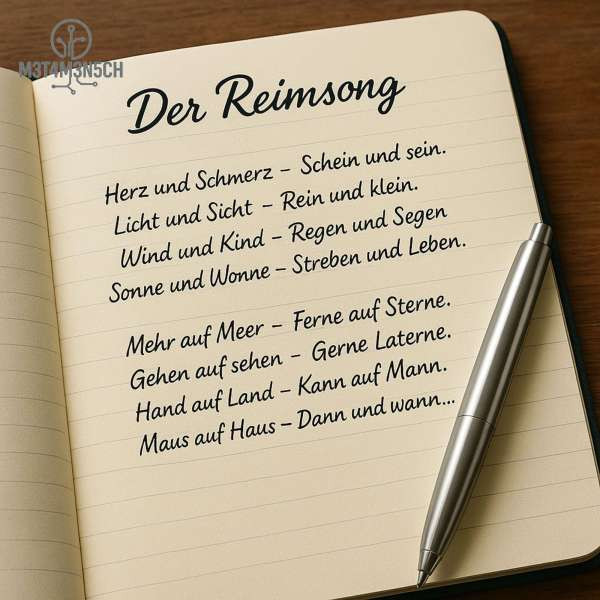 M3T4M3N5CH
Der Reimsong
Herz und Schmerz – Schein und sein.
Licht und Sicht – Rein und klein.
Wind und Kind – Regen und Segen
Sonne und Wonne – Streben und Leben.
Mehr auf Meer – Ferne auf Sterne.
Gehen auf sehen – Gerne Laterne.
Hand auf Land – Kann auf Mann.
Maus auf Haus – Dann und wann...